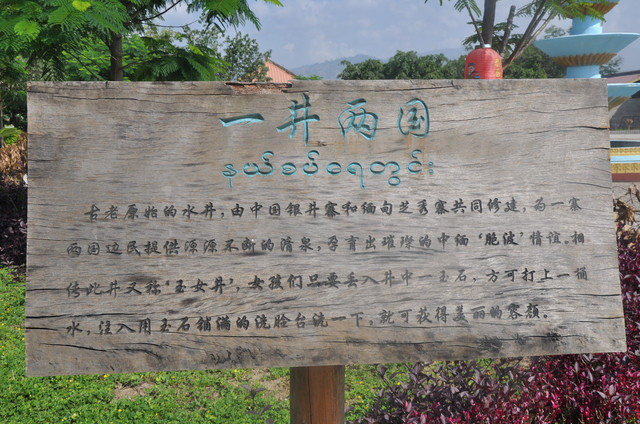 一井两国
နယ်စပ်ရေတွင်း
古老原始的水井，由中国银井寨和缅甸芒秀寨共同修建，为一寨
两国边民提供源源不断的清泉，孕育出璀璨的中缅‘胞波’情谊。相
传此井又称‘玉女井’，女孩们只要丢入井中一玉石，方可打上一桶
水，经入用玉石铺满的洗脸台洗一下，就可获得美丽的容颜。